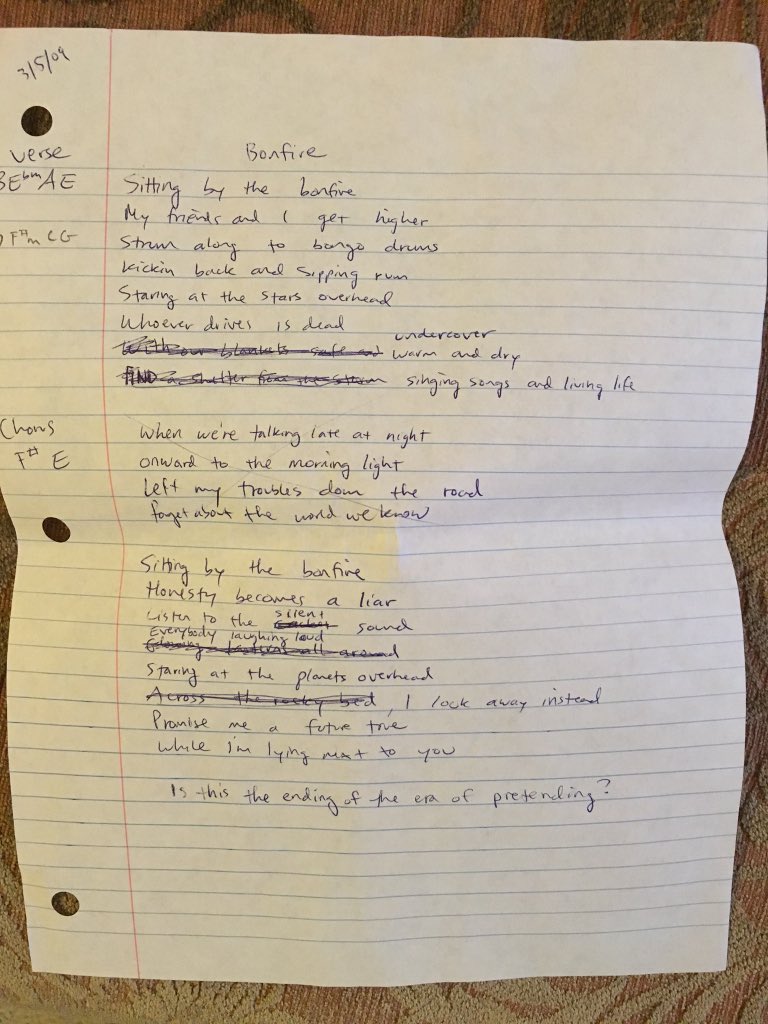 3/5/09
Verse
Bonfire
BEbmAE
Sitting by the bonfire
My friends and I get higher
F#m CG
Strum along to bongo drums
Kickin back and sipping rum
Staring at the stars overhead
Whoever drives is dead
undercover
With our blankets safe and warm and dry
AND a shelter from the storm singing songs and living life
Chorus
When we're talking late at night
F# E
onward to the morning light
Left my troubles down the road
forget about the world we know
Sitting by the bonfire
Honesty becomes a liar
silent
Listen to the sound
Everybody laughing loud
all around
Staring at the planets overhead
Across the rocky bed, I look away instead
Promise me a future true
While I'm lying next to you
Is this the ending of the era of pretending?